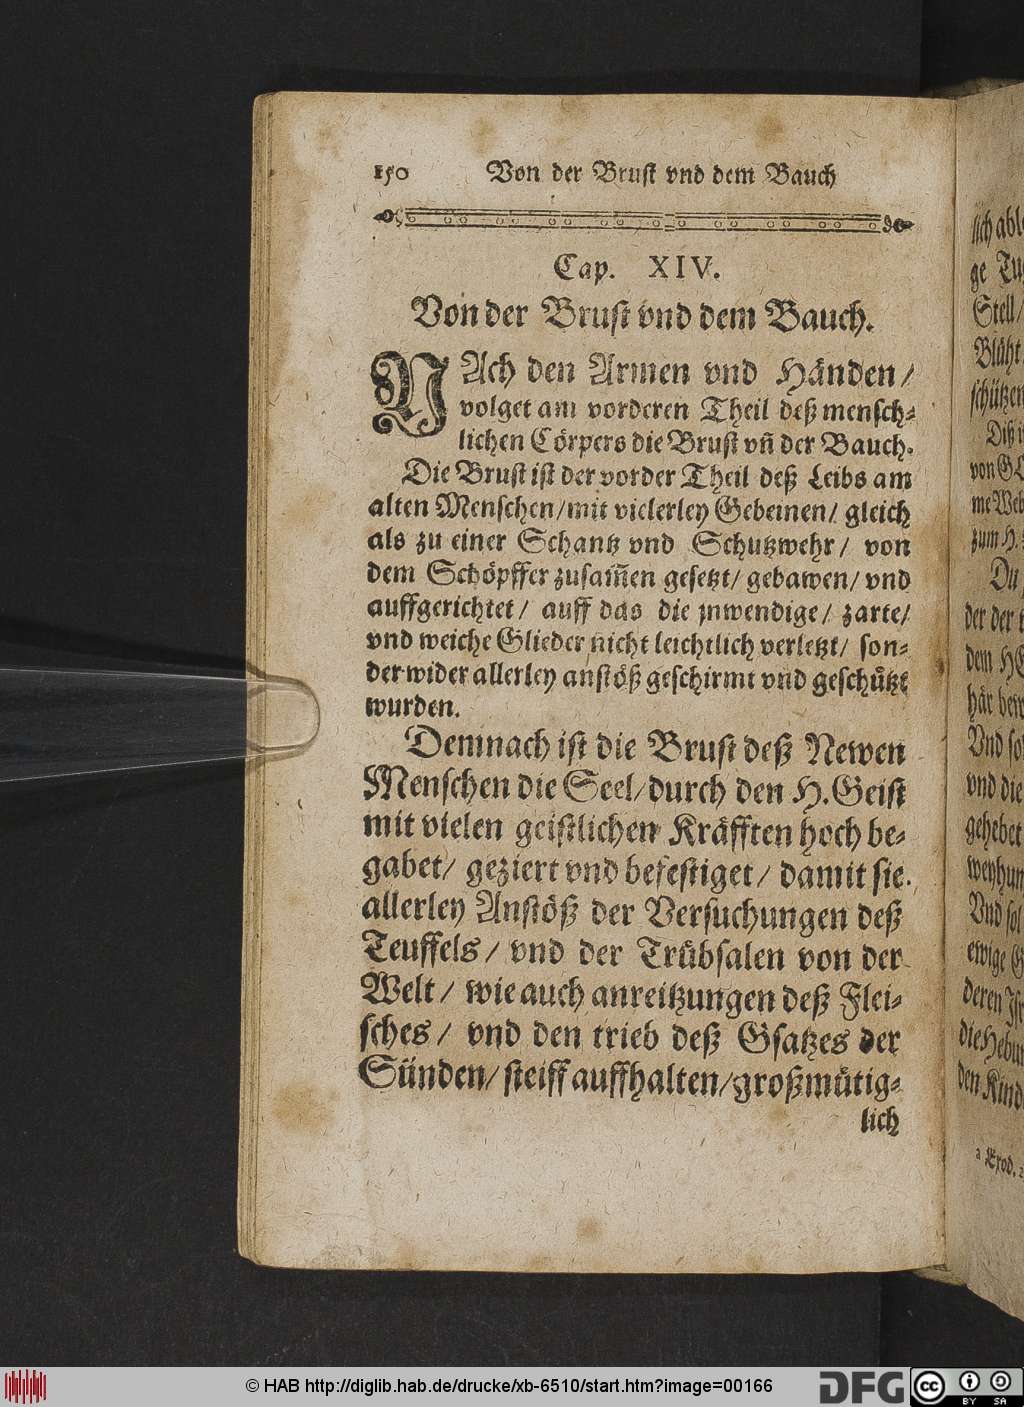 150 Von der Brust vnd dem Bauch
Cap. XIV.
Von der Brust vnd dem Bauch.
NAch den Armen vnd Händen/
volget am vorderen Theil deß mensch⸗
lichen Cörpers die Brust vñ der Bauch.
Die Brust ist der vorder Theil deß Leibs am
alten Menschen/ mit vielerley Gebeinen/ gleich
als zu einer Schantz vnd Schutzwehr/ von
dem Schöpffer zusam̃en gesetzt/ gebawen/ vnd
auffgerichtet/ auff das die jnwendige/ zarte/
vnd weiche Glieder nicht leichtlich verletzt/ son⸗
der wider allerley anstöß geschirmt vnd geschützt
wurden.
Demnach ist die Brust deß Newen
Menschen die Seel/ durch den H. Geist
mit vielen geistlichen Kräfften hoch be⸗
gabet/ geziert vnd befestiget/ damit sie
allerley Anstöß der Versuchungen deß
Teuffels/ vnd der Trübsalen von der
Welt/ wie auch anreitzungen deß Flei⸗
sches/ vnd den trieb deß Gsatzes der
Sünden/ steiff auffhalten/ großmütig⸗
lich
lich abl
ge Tu
Stell/
Blüht
schützen
Diß i
von G
me Web
zum H.
Du
der der
dem HE
här bew
Vnd so
vnd die
gehebet
weyhun
Vnd sol
ewige G
deren Js
die Hebu
den Kind
a Exod. 2
© HAB http://diglib.hab.de/drucke/xb-6510/start.htm?image=00166
DFG
cc
BY SA